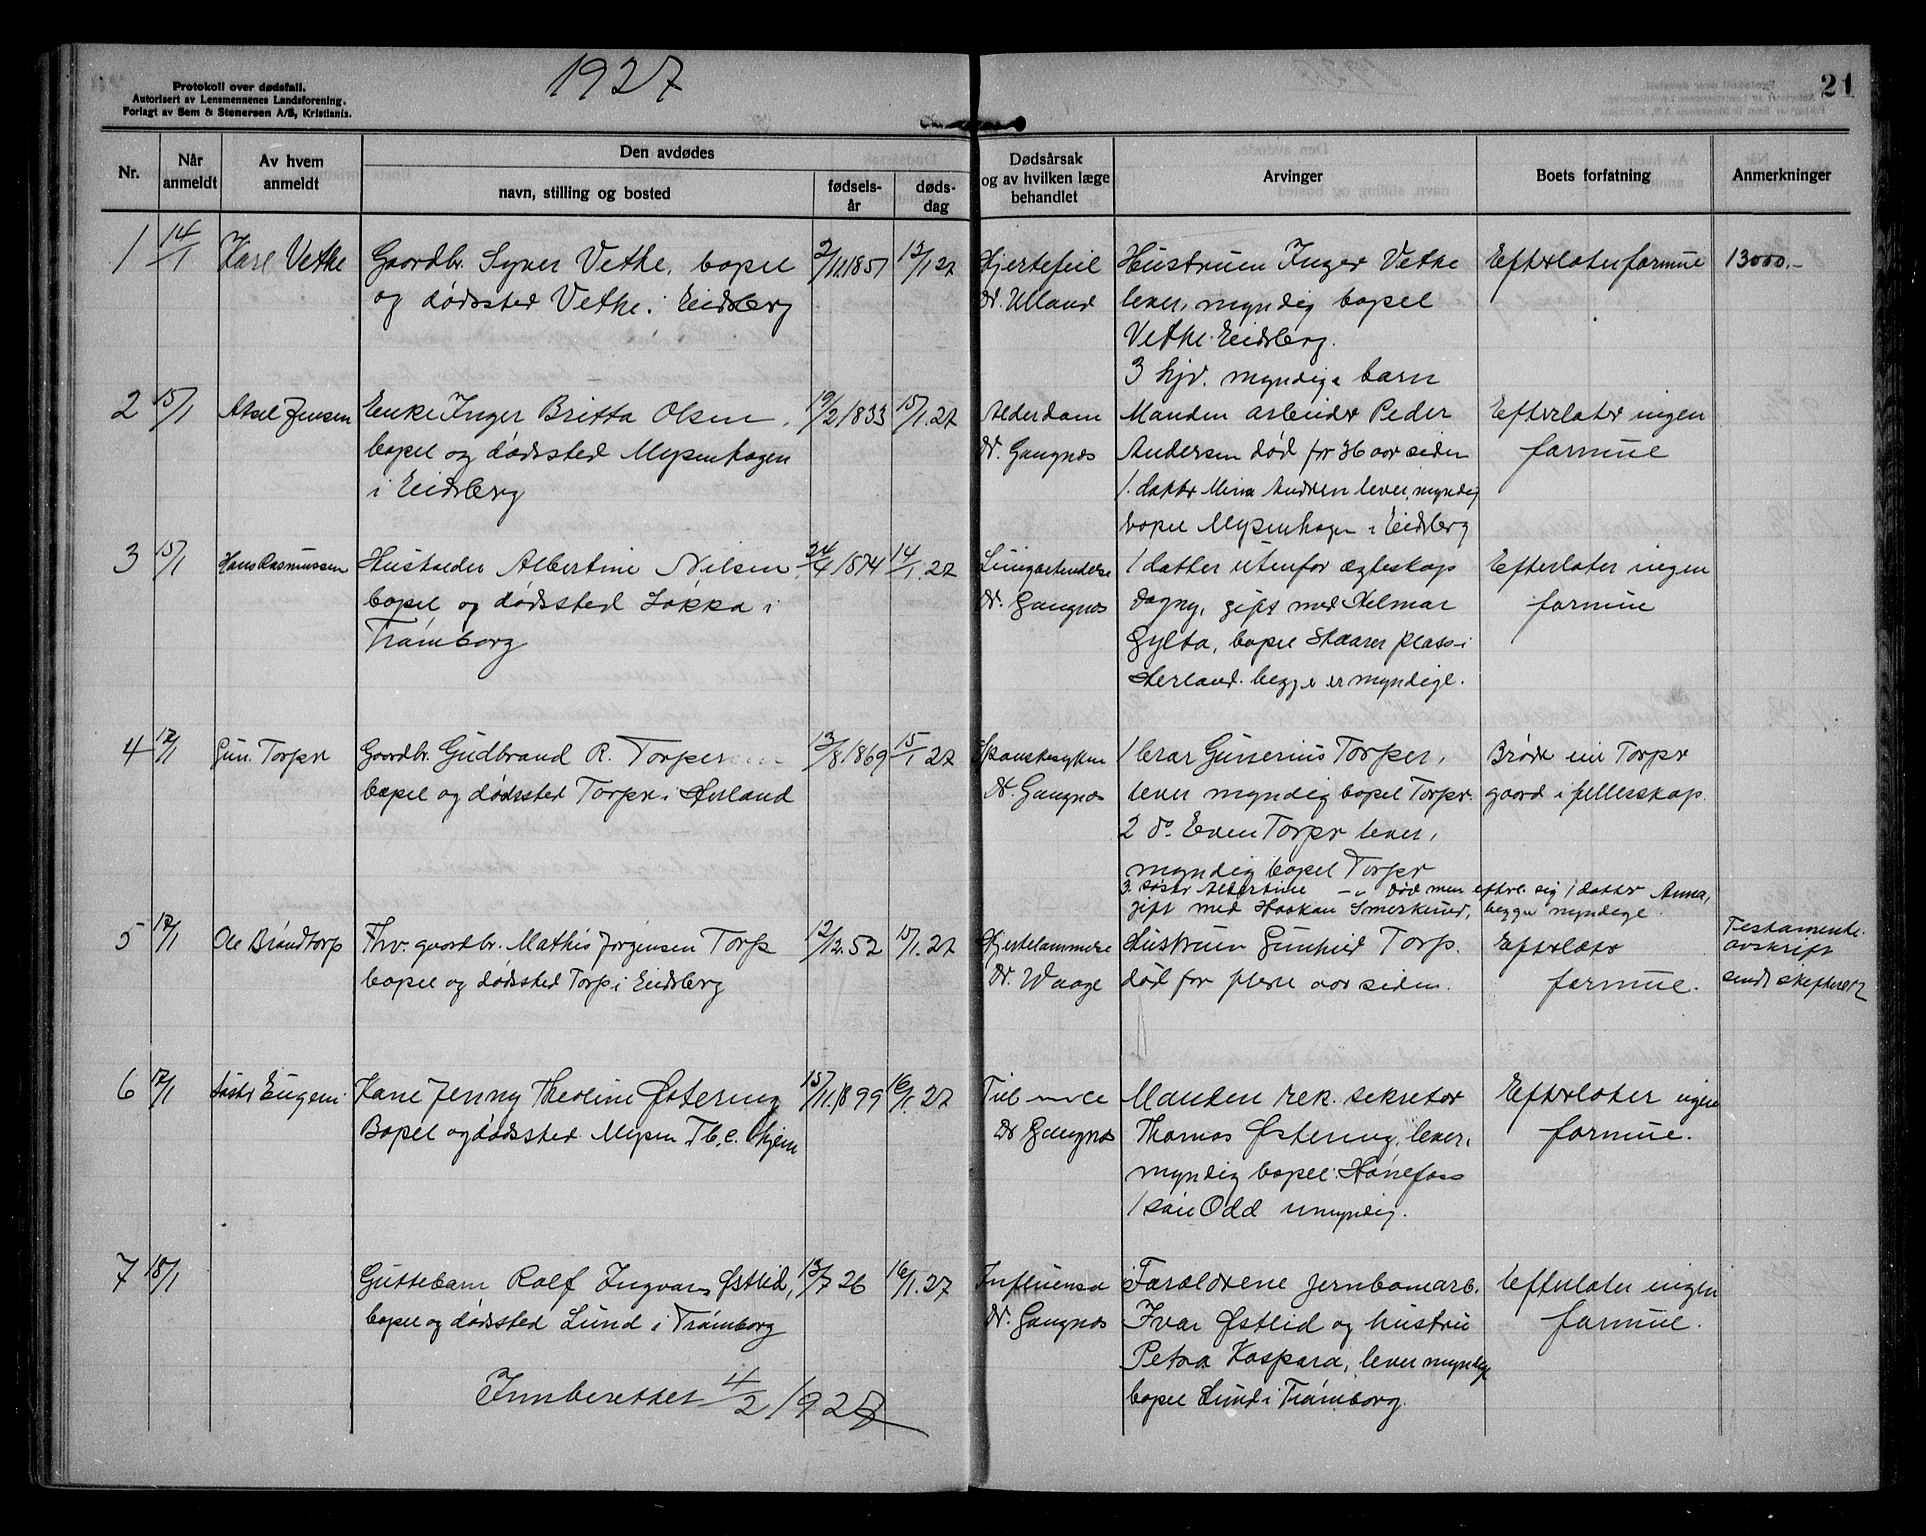 1927
21
Protokoll over dødsfall.
Autorisert av Lensmennenes Landsforening.
Forlagt av Sem & Stenersen A/S, Kristiania.
Nr.
Når anmeldt
Av hvem anmeldt
Den avdødes
navn, stilling og bosted
fødsels-år
døds-dag
Dødsårsak og av hvilken læge behandlet
Arvinger
Boets forfatning
Anmerkninger
1 14/1 Karl Vethe Gaardbr. Syver Vethe, bopel 2/11 1851 12/1 27 Hjertefeil Hustruen Inger Vethe Efterlater formue 13000.-
og dødssted Vethe i Eidsberg Dr. Ulland lever, myndig bopel
Vethe Eidsberg.
3 hjv. myndige barn
2 15/1 Aksel Jensen Enke Inger Britta Olsen, 19/2 1833 15/1.27 Alderdom Manden arbeider Peder Efterlater ingen
bopel og dødssted Mysenhagen Dr. Gangnæs Andersen død for 36 aar siden formue
i Eidsberg 1. datter Mina Andersen lever, myndig
bopel Mysenhagen i Eidsberg
3 15/1 Hans Rasmussen Husholder Albertine Nilsen, 24/4 1874 14/1.27 Lungebetendelse 1 datter utenfor egteskap Efterlater ingen
bopel og dødssted Løkka i Dr. Gangnæs Dagny, gift med Helmar formue
Trømborg Gylta, bopel Skaarer plass i
Herland. begge er myndige.
4 17/1 Gun. Torper Gaardbr. Gudbrand R. Torper 13/8 1869 15/1 27 Spanskesyken 1 bror Gunerius Torper, Brødr. eier Torper
bopel og dødssted Torper i Herland Dr. Gangnæs lever myndig bopel Torper. gaard i fellesskap.
2 do. Even Torper lever,
myndig bopel Torper
3. søster Albertine -"- død men efterl. sig 1 datter Anna,
gift med Haakan Smerkerud, begge myndige.
5 17/1 Ole Brøndtorp Fhv. gaardbr. Mathis Jørgensen Torp 12/12.52 15/1.27 Hjertelammelse Hustruen Gunhild Torp. Efterlater Testamente.
avskrift
bopel og dødssted Torp i Eidsberg Dr. Waage død for flere aar siden. formue. sendt skifteret
6 17/1 Søster Eugeni Kone Jenny Theoline Østereng 15/11.1899 16/1.27 Manden rek. sekretær Efterlater ingen
Bopel og dødssted Mysen Tb.c. hjem Dr Gangnæs Thomas Østereng, lever, formue.
myndig bopel: Hønefoss
1 søn Odd umyndig.
7 18/1 Guttebarn Rolf Ingvar Østlid, 13/7 26 16/1.27 Influensa Forældrene jernbanearb. Efterlater ingen
bopel og dødssted Lund i Trømborg Dr. Gangnæs Ivar Østlid og hustru formue.
Petra Kaspara, lever myndige
bopel Lund i Trømborg.
Innberettet 4/2 1927